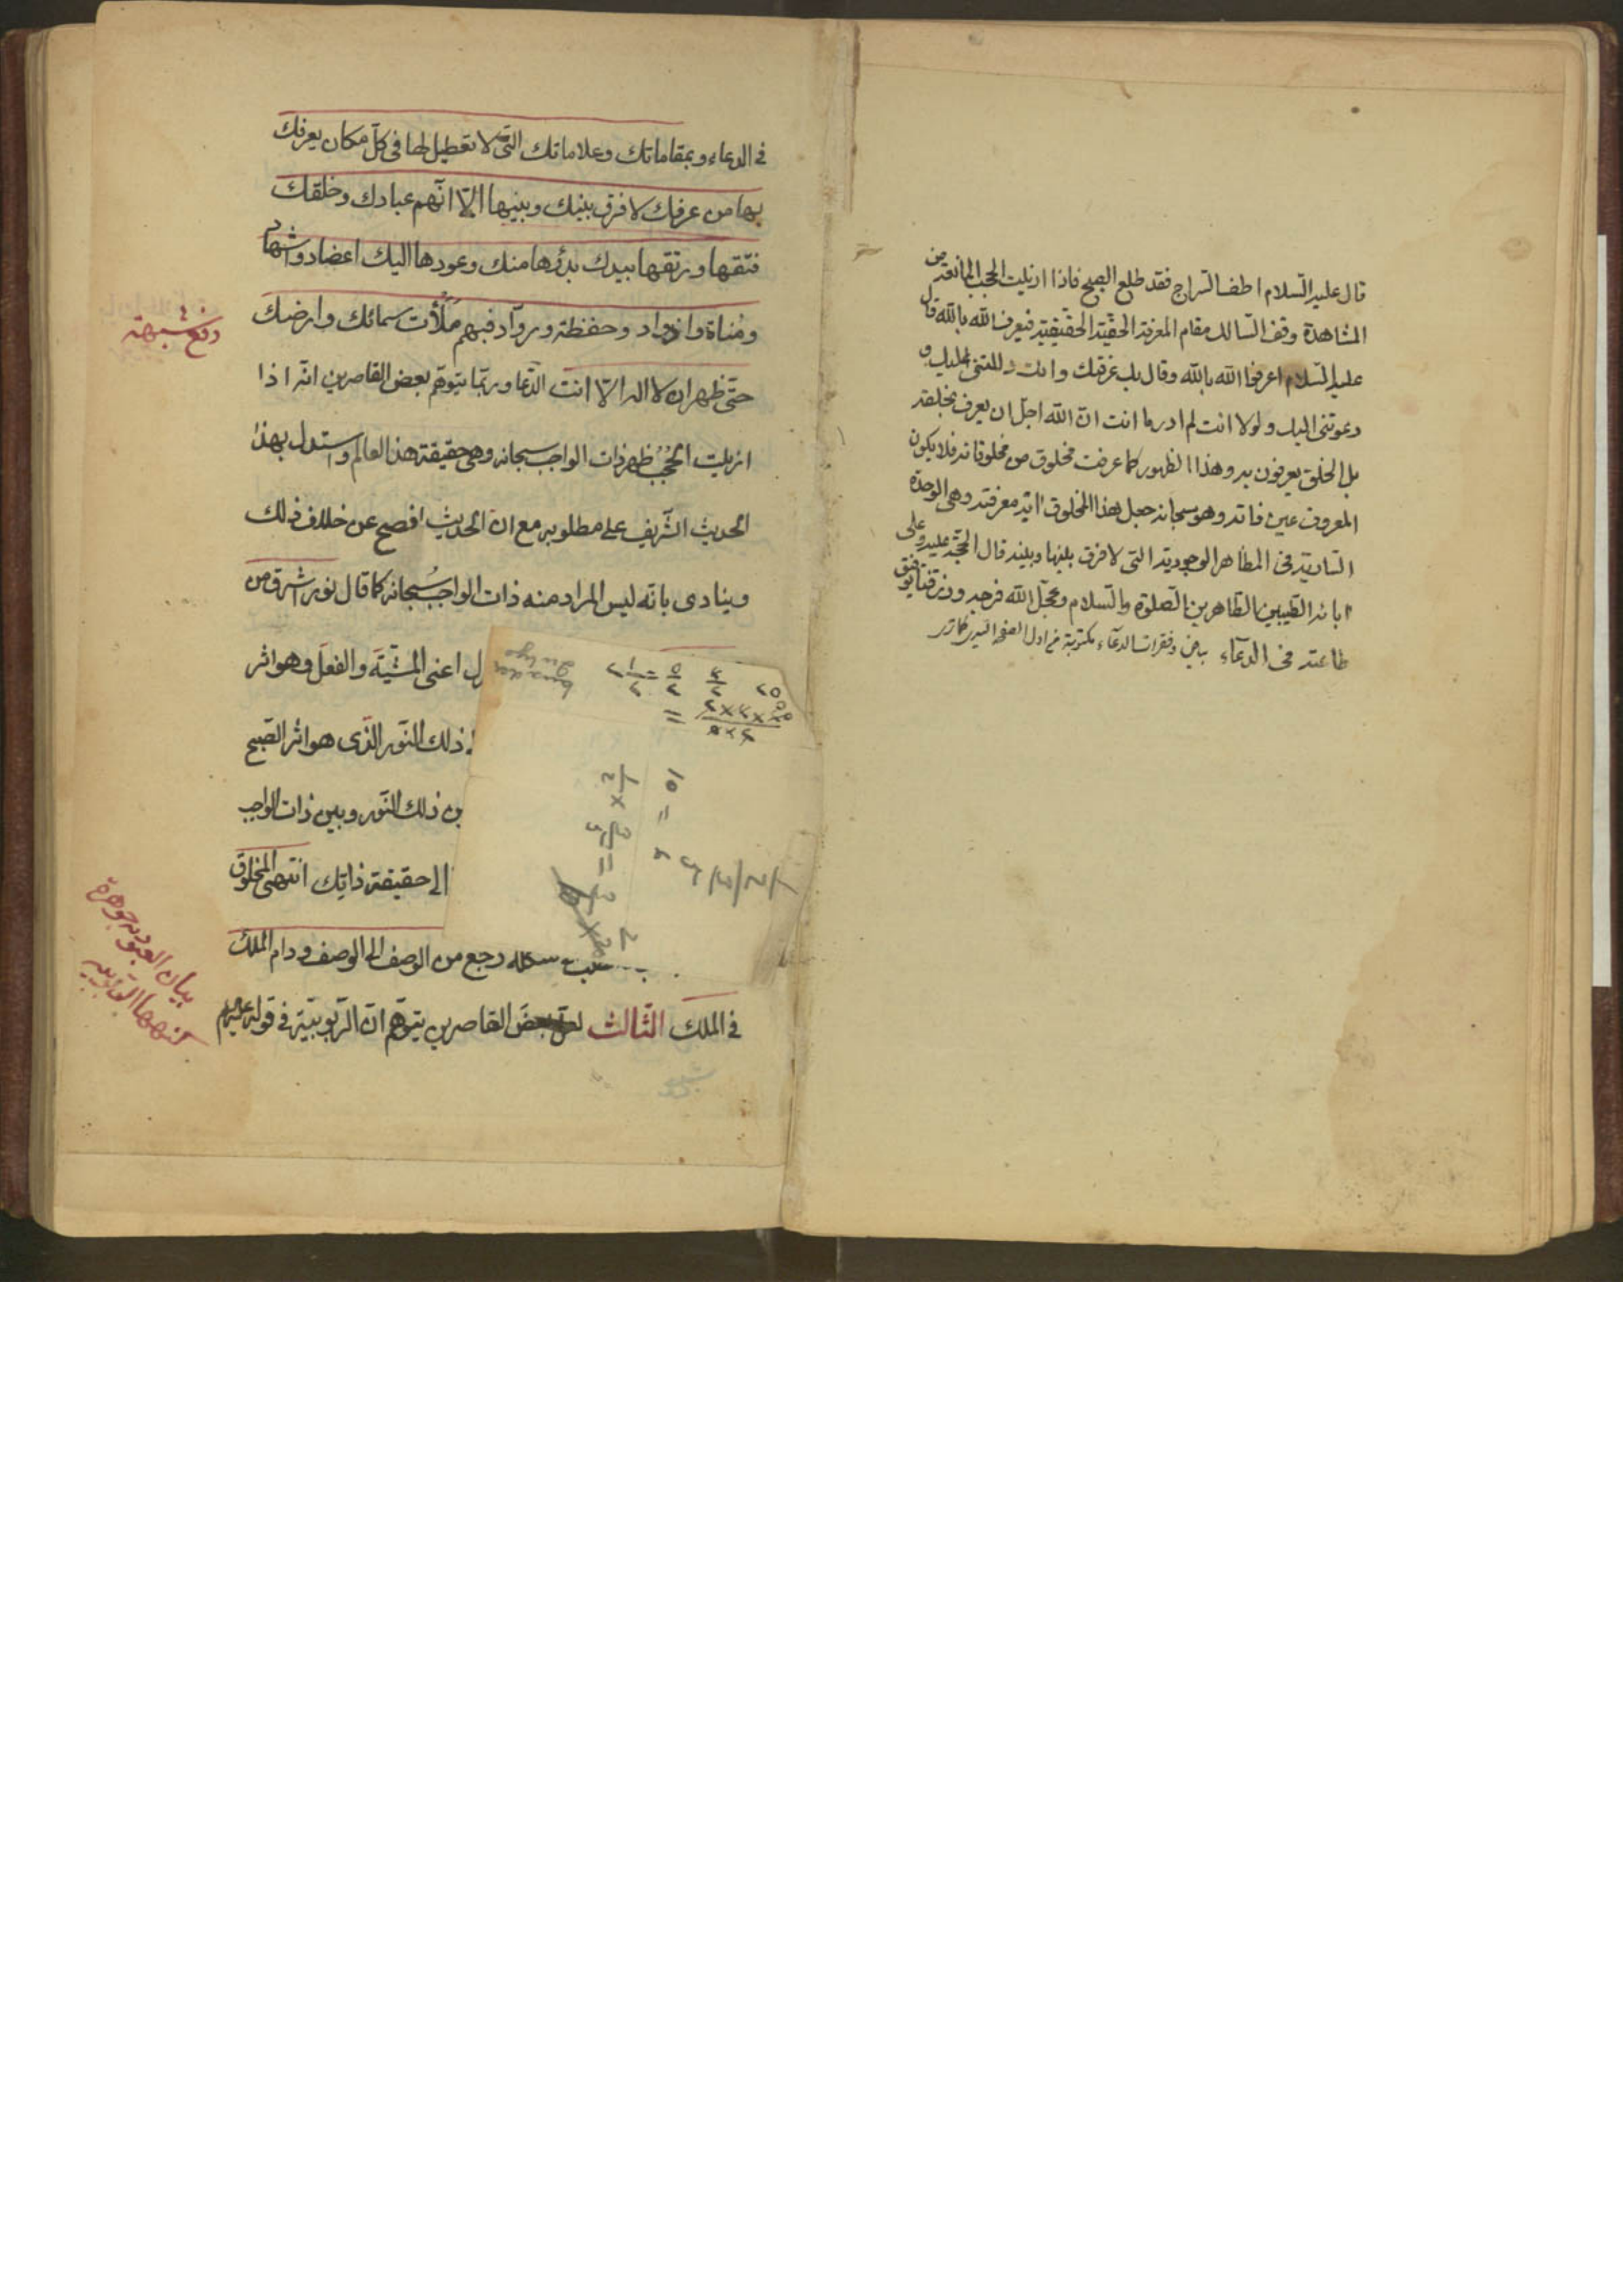 قال عليه السلام اطف السراج فقد طلع الصبح فاذا ازيلت الحجب المانعة من
المشاهدة وقف السالك مقام المعرفة الحقية الحقيقية فيعرف الله بالله قال
عليه السلام اعرفوا الله بالله وقال بك عرفتك وانت دللتنى عليك و
دعوتنى اليك ولولا انت لم ادر ما انت ان الله اجل ان يعرف بخلقه
بل الخلق يعرفون به وهذا الظهور كما عرفت مخلوق من مخلوقاته فلا يكون
المعروف عين ذاته وهو سبحانه جعل هذا المخلوق اية معرفته وهى الوحدة
السارية فى المظاهر الوجودية التى لا فرق بينها وبينه قال الحجة عليه وعلى
ابائه الطيبين الطاهرين الصلوة والسلام وعجل الله فرجه ورزقنا
طاعته فى الدعاء وفقرات الدعاء مكتوبة فى اول الصفحة
فى الدعاء وبمقاماتك وعلاماتك التى لا تعطيل لها فى كل مكان يعرفك
بها من عرفك لا فرق بينك وبينها الا انهم عبادك وخلقك
فتقها ورتقها بيدك بدؤها منك وعودها اليك اعضاد واشهاد
ومناة واذواد وحفظة ورواد فبهم ملأت سمائك وارضك
حتى ظهر ان لا اله الا انت الدعا وربما يتوهم بعض القاصرين انه اذا
ازيلت الحجب ظهر ذات الواجب سبحانه وهى حقيقة هذا العالم واستدل بهذا
الحديث الشريف على مطلوبه مع ان الحديث افصح عن خلاف ذلك
وينادى بانه ليس المراد منه ذات الواجب سبحانه كما قال نور اشرق من
اعنى المشية والفعل وهو اثر
ذلك النور الذى هو اثر الصبح
ذلك النور وبين ذات الواجب
الى حقيقة ذاتك انتهى المخلوق
رجع من الوصف الى الوصف ودام الملك
فى الملك الثالث بعض القاصرين يتوهم ان الربوبية فى قوله
دفع شبهة
بيان العبودية جوهرة
كنهها الربوبية